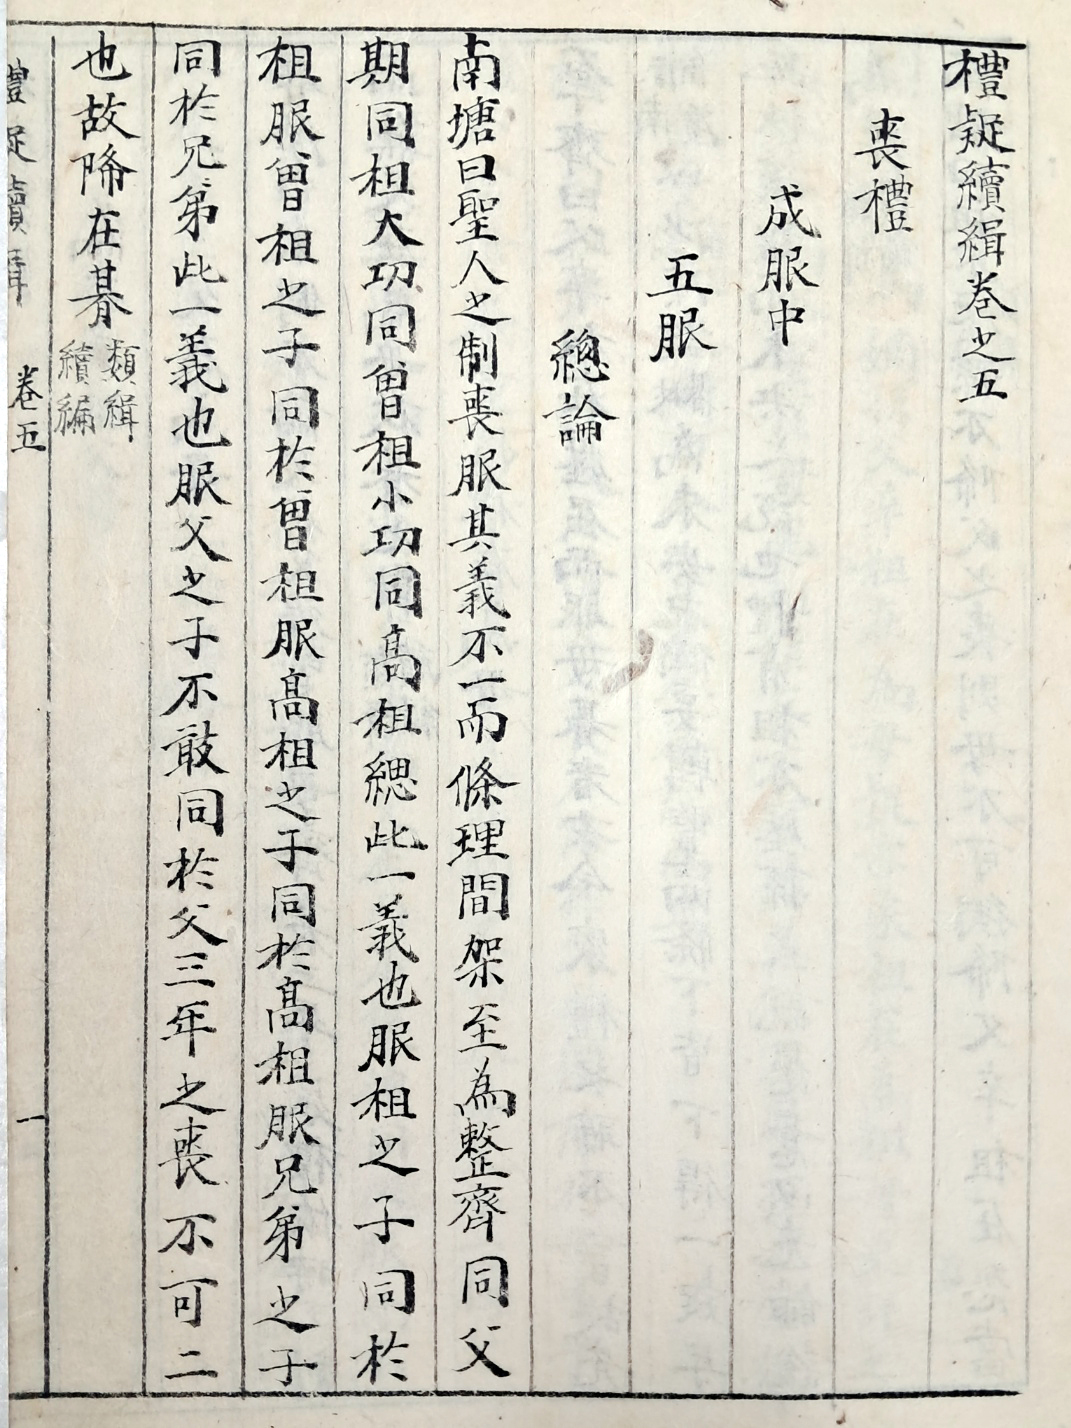 禮疑續緝卷之五
喪禮
成服中
五服
總論
南塘曰聖人之制喪服其義不一而條理間架至為整齊同父
期同祖大功同曾祖小功同高祖緦此一義也服祖之子同於
祖服曾祖之子同於曾祖服高祖之子同於高祖服兄弟之子
同於兄弟此一義也服父之子不敢同於父三年之喪不可二
也故降在朞類緝
續編
禮疑續緝
卷五
一